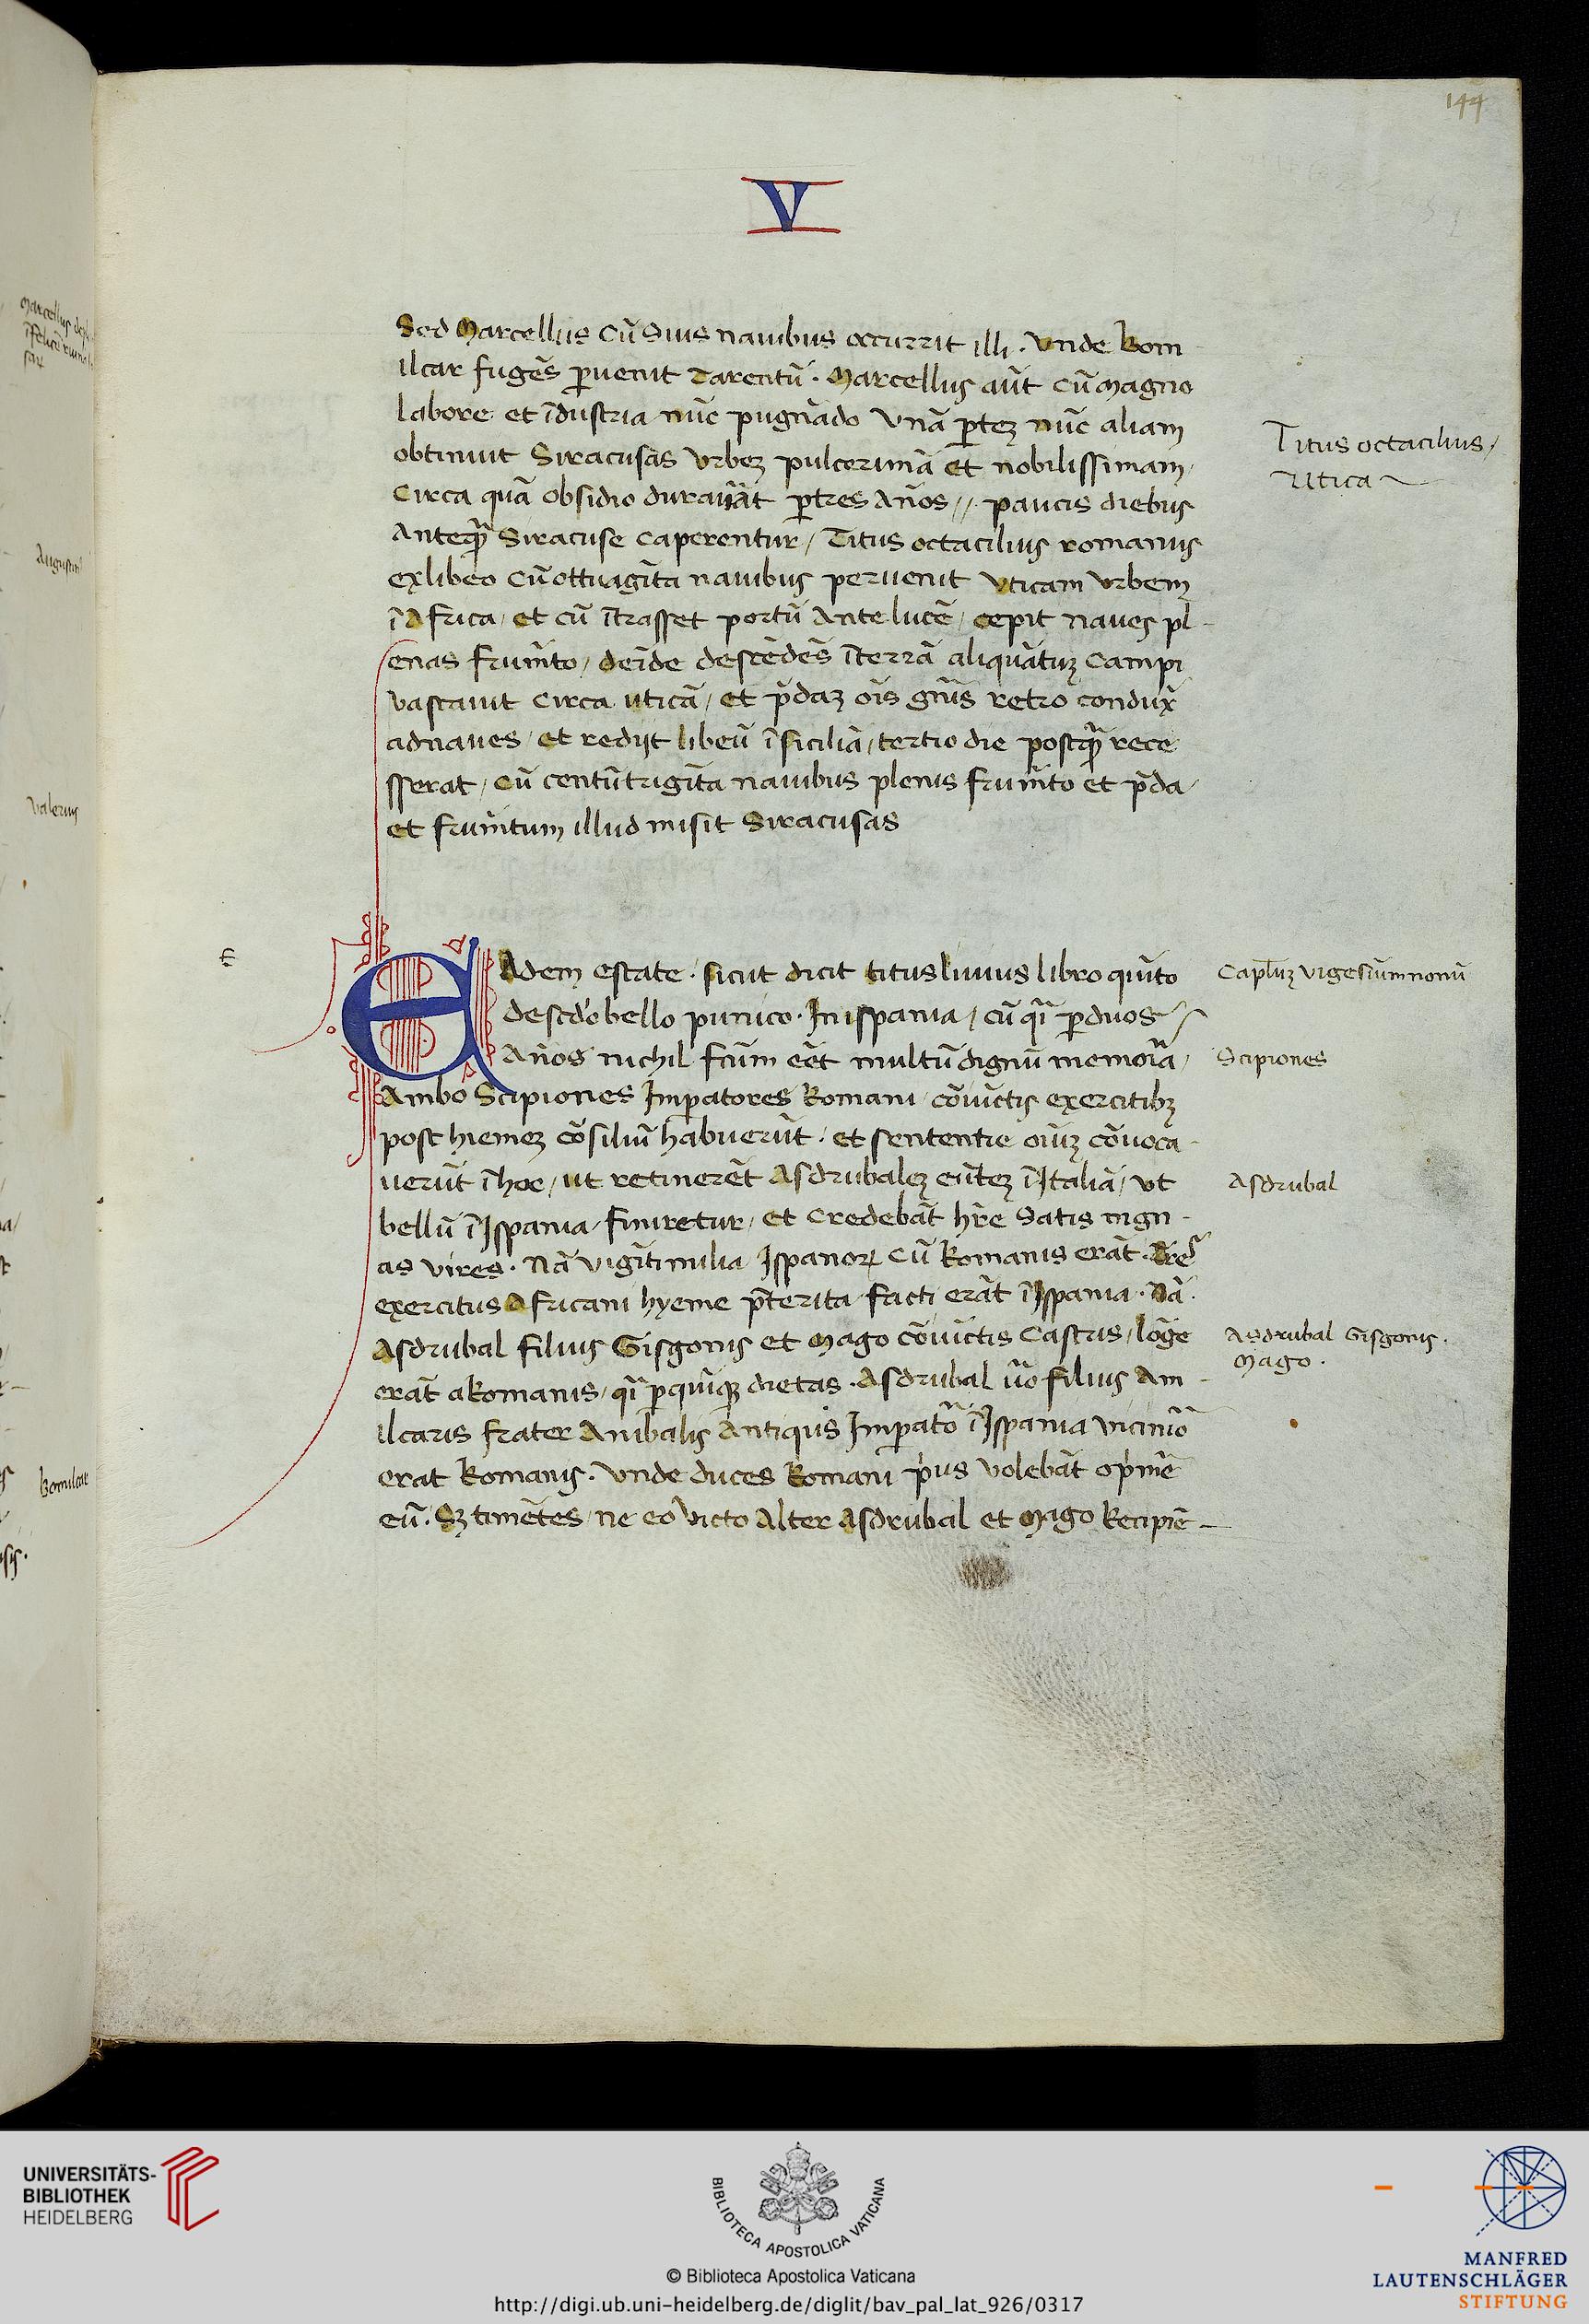 144
V
Sed Marcellus cū Suis nauibus occurrit illi . Vnde bom
ilcar fugēs ꝑuenit Tarentū . Marcellus aūt cū magno
labore et īdustria nūc pugnādo Vnā ꝑteʒ nūc aliam
obtinuit Siracusas Vrbeʒ pulcerimā et nobilissimam /
Circa quā obsidio durau͛āt ꝑtres Años // paucis diebus
Anteq̄ Siracuse Caperentur / Titus octacilius romanus
exlibeo Cūottuagīta nauibus peruenit Vticam Vrbem
ī Africa / et cū ītrasset portū Ante lucē / cepit naues pl
enas frumīto / deīde descēdēs īterrā aliquātuʒ Campi
vastauit Circa uticā / et p̄daʒ oīs gn̄is retro condux̄
adnaues / et redijt libeū ī siciliā / tertio die postq̄ rece
sserat / cū centūtrigīta nauibus plenis frumīto et p̄da /
et frumītum illud misit Siracusas
Titus octacilius /
Utica
E
EAdem estate . sicut dicit titusliuius libro quīto
descd͛o bello punico . In ispania / cū qī ꝑduos
Años nichil fc̄um eēt multū dignū memoīa /
Ambo Scipiones Imꝑatores Romani cōiuctis exercitibʒ
post hiemeʒ cōsiliū habuerūt . et sententie oīuʒ cōuoca
uerūt ī hoc / ut retinerēt Asdrubaleʒ eūteʒ ī Italiā / vt
bellū ī Ispania / finiretur / et Credebāt hr̄e Satis mgn
as vires . Nā vigīti milia Ispanoꝝ Cū Romanis erāt .
exercitus Africani hyeme p̄terita facti erāt ī Ispania . Nā .
Asdrubal filius Gisgonis et Mago cōiuctis Castris / lōge
erāt aRomanis / qī ꝑquīqʒ dietas . Asdrubal u͞o filius Am
ilcaris frater Anibalis Antiquus Imꝑato͛ ī Ispania vicinio͛
erat Romanis . Vnde duces Romani p͛us volebāt op͛mē
eū . Sʒ timētes / ne eo victo Alter Asdrubal et Mago Recipiē
Capl̄uʒ vigesiumnonū
Scipiones
Asdrubal
Asdrubal Gisgonis .
Mago .
Augustin
Valerius
bomilcar
UNIVERSITÄTS-
BIBLIOTHEK
HEIDELBERG
BIBLIOTECA APOSTOLICA VATICANA
© Biblioteca Apostolica Vaticana
http://digi.ub.uni-heidelberg.de/diglit/bav_pal_lat_926/0317
MANFRED
LAUTENSCHLÄGER
STIFTUNG